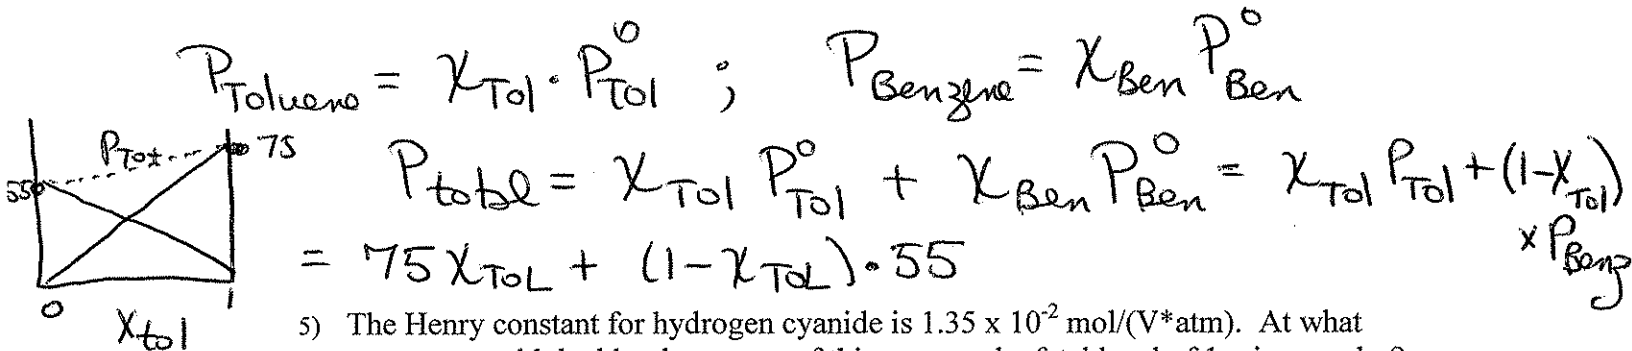 P_Toluene = χ_Tol · P°_Tol ; P_Benzene = χ_Ben P°_Ben
P_Tot 75
55
P_total = χ_Tol P°_Tol + χ_Ben P°_Ben = χ_Tol P_Tol + (1-χ_Tol)
x P_Benz
= 75 χ_TOL + (1-χ_TOL) · 55
0 1
X_tol
5) The Henry constant for hydrogen cyanide is 1.35 x 10⁻² mol/(V*atm). At what